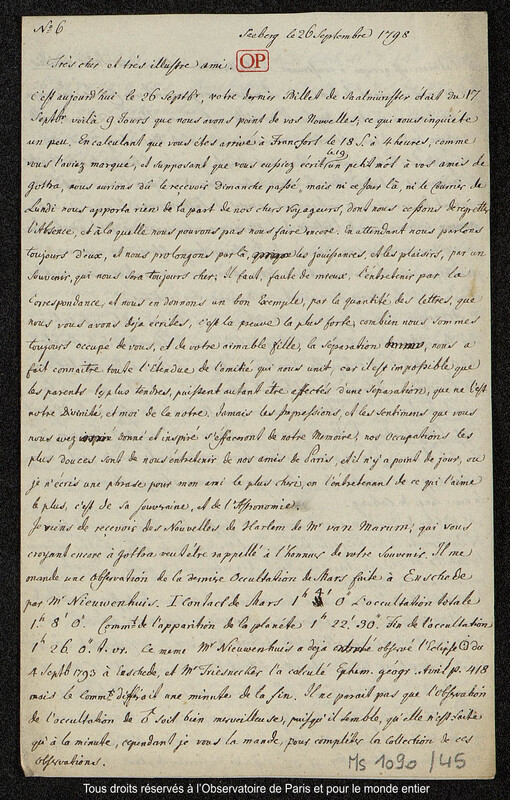 No. 6 Seeberg le 26 Septembre 1798
Très cher et très illustre ami. OP
C'est aujourd'hui le 26 Septbr, votre dernier Billet de Saalmünster étoit du 17
Septbr voilà 9 Jours que nous avons point de vos Nouvelles, ce qui nous inquiète
un peu. En calculant que vous êtes arrivé à Francfort le 18 S. à 4 heures, comme
vous l'aviez marqué, et supposant que vous eussiez écrit le 19 un petit mot à vos amis de
Gotha, nous aurions dû le recevoir dimanche passé, mais ni ce jour là, ni le Courrier de
Lundi nous apporta rien de la part de nos chers Voyageurs, dont nous cessons de régretter
l'Absence, et à la quelle nous pouvons pas nous faire encore. En attendant nous parlons
toujours d'eux, et nous prolongons par là, les jouissances, et les plaisirs, par un
Souvenir, qui nous sera toujours cher; Il faut, faute de mieux, l'entretenir par la
Correspondance, et nous en donnons un bon Exemple, par la quantité des lettres, que
nous vous avons deja écrites, c'est la preuve la plus forte, combien nous sommes
toujours occupé de vous, et de votre aimable fille, la séparation nous a
fait connaitre toute l'étendue de l'amitié qui nous unit, car il est impossible que
les parents les plus tendres, puissent autant être affectés d'une séparation, que ne l'est
notre Divinité, et moi de la notre. Jamais les Impressions, et les sentimens que vous
nous avez donné et inspiré s'effaceront de notre Memoire; nos Occupations les
plus douces sont de nous entretenir de nos amis de Paris, et il n'y a point de jour, ou
je n'écris une phrase pour mon ami le plus cheri, en l'entretenant de ce qui l'aime
le plus, c'est de sa souveraine, et de l'Astronomie.
Je viens de recevoir des Nouvelles de Harlem de Mr van Marum, qui vous
croyant encore à Gotha veut etre rappellé à l'honneur de votre Souvenir. Il me
mande une Observation de la dernière Occultation de Mars faite à Enschede
par Mr Nieuwenhuis. I Contact de Mars 1h 4' 0" L'occultation totale
1h 8' 0". Commt de l'apparition de la planète 1h 22' 30" Fin de l'occultation
1h 26' 0" t. vr. Ce meme Mr Nieuwenhuis a deja observé l'Eclipse ☉ du
4 Septb 1793 à Enschede, et Mr Triesnecker l'a calculé Ephem. géogr. Avril p. 418
mais le Commt différait une minute de la fin. Il ne parait pas que l'Observation
de l'occultation de ♂ soit bien merveilleuse, puisqu'il semble, qu'elle n'est faite
qu'à la minute, cependant je vous la mande, pour completer la Collection de ces
observations.
Ms 1090 / 45
Tous droits réservés à l'Observatoire de Paris et pour le monde entier